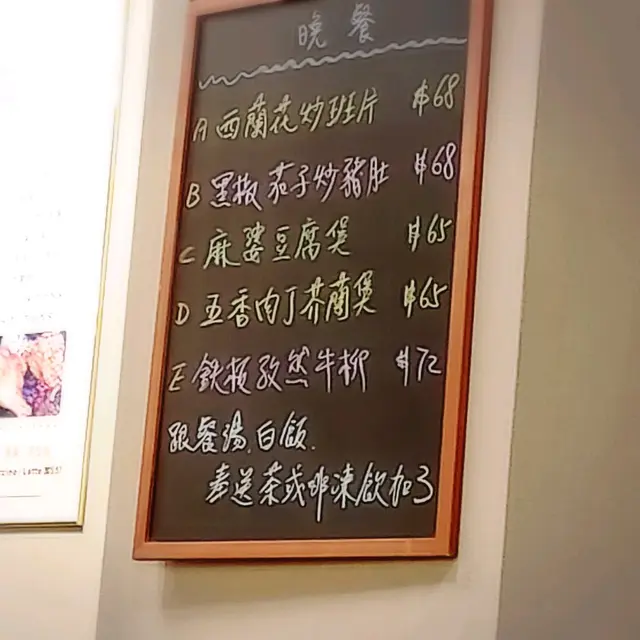 晚餐
A 西蘭花炒班片 $68
B 黑椒茄子炒豬肚 $68
C 麻婆豆腐煲 $65
D 五香肉丁芥蘭煲 $65
E 鉄板孜然牛柳 $72
跟餐湯.白飯.
奉送茶或啡凍飲加3